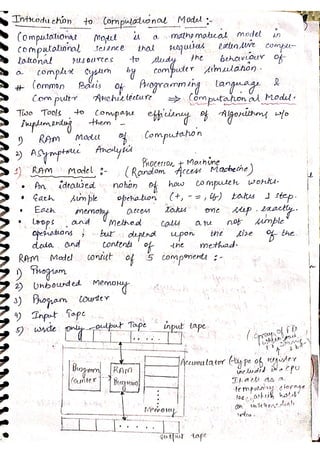 Introduction to Computational Model :-
Computational Model is a mathematical model in
computational science that requires extensive compu-
tational resources to study the behaviour of
a complex system by computer simulation.
# Common Basis of Programming language &
Computer Architecture => Computational Model.
Two Tools to Compare efficiency of Algorithms w/o
Implementing them -
1) RAM Model of Computation
2) Asymptotic Analysis
Processor + Machine
1) RAM Model :- (Random Access Machine)
• An idealized notion of how computer works.
• Each simple operation (+, -, =, if) takes 1 step.
• Each memory access takes one step exactly.
• Loops and Method calls are not simple
operations, but depend upon the size of the
data and contents of the method.
RAM Model consist of 5 components :-
1) Program
2) Unbounded Memory
3) Program Counter
4) Input Tape
5) write only output Tape
input tape
Program
Counter
RAM
Program
Accumulator (type of register
included in a CPU
It acts as a
temporary storage
which holds
an intermediate
Memory
output tape